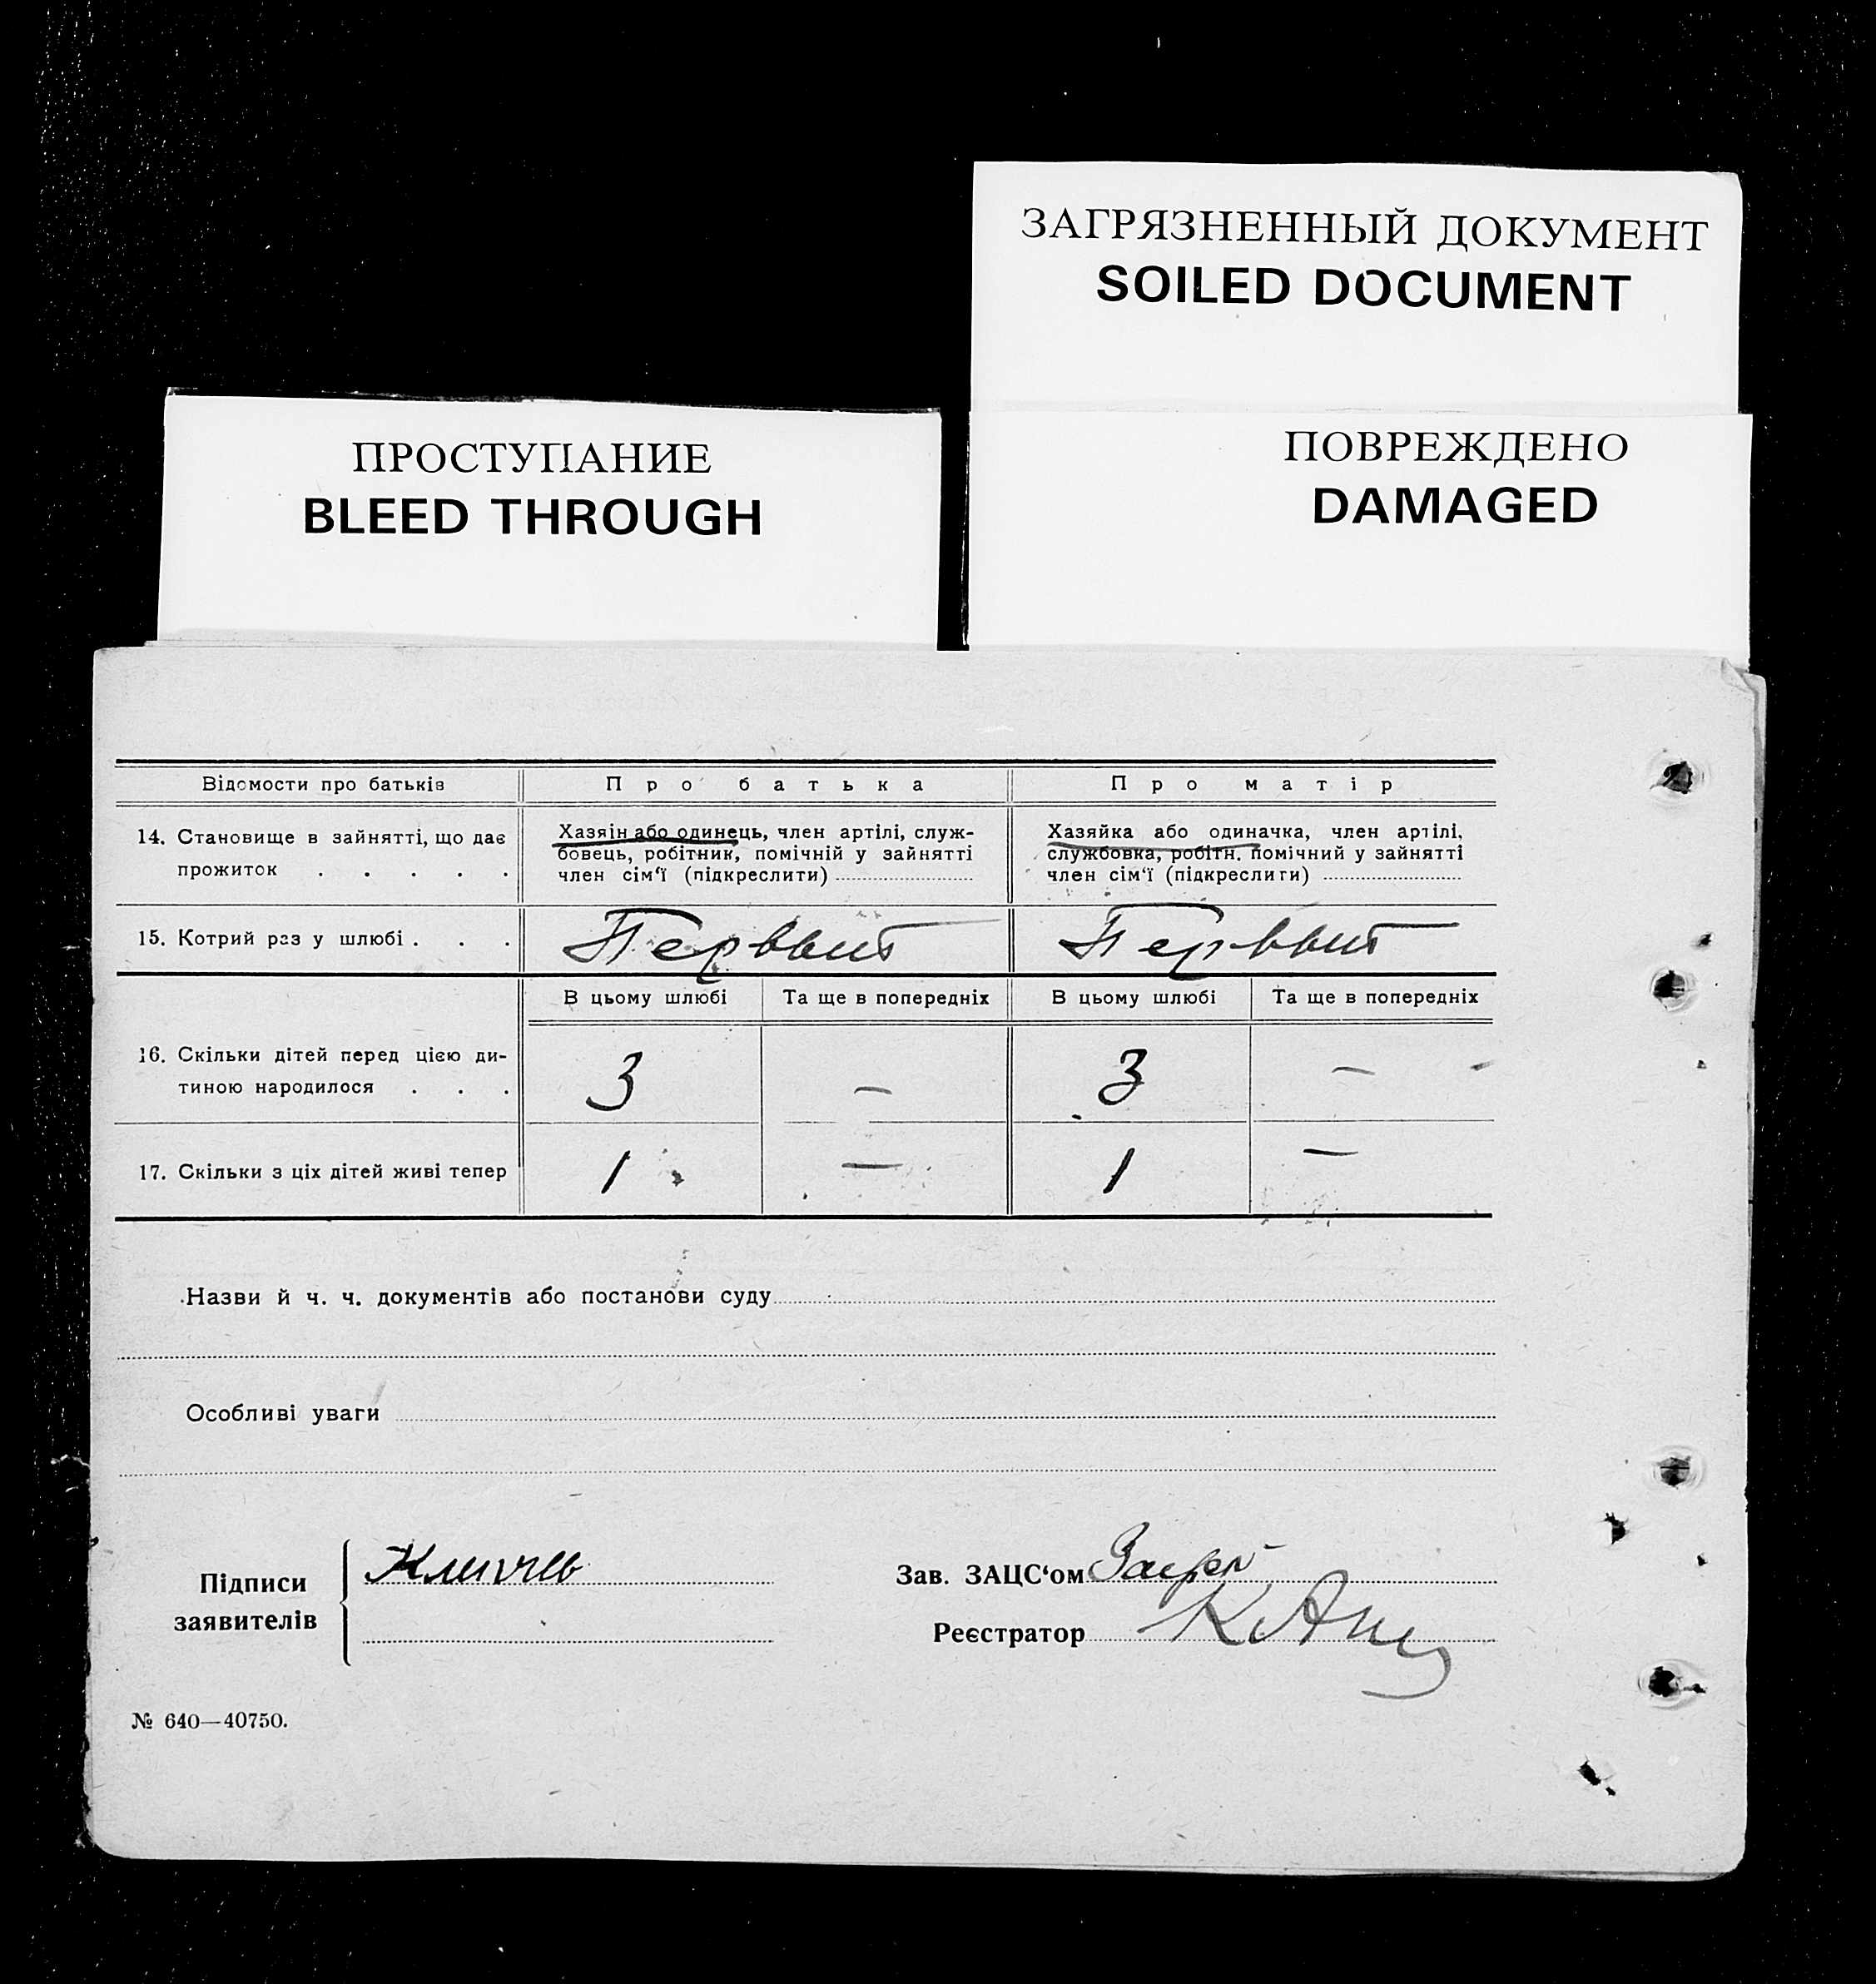 ЗАГРЯЗНЕННЫЙ ДОКУМЕНТ
SOILED DOCUMENT
ПРОСТУПАНИЕ
BLEED THROUGH
ПОВРЕЖДЕНО
DAMAGED
Відомости про батьків Про батька Про матір
14. Становище в зайнятті, що дає
прожиток . . . . .
Хазяїн або одинець, член артілі, служ-
бовець, робітник, помічній у зайнятті
член сім'ї (підкреслити)
Хазяйка або одиначка, член артілі,
службовка, робітн. помічний у зайнятті
член сім'ї (підкреслити)
15. Котрий раз у шлюбі . . . Первый Первый
В цьому шлюбі Та ще в попередніх В цьому шлюбі Та ще в попередніх
16. Скільки дітей перед цією ди-
тиною народилося . . . 3 — 3 —
17. Скільки з ціх дітей живі тепер 1 — 1 —
Назви й ч. ч. документів або постанови суду
Особливі уваги
Підписи
заявителів
Зав. ЗАЦС'ом
Реєстратор
№ 640—40750.